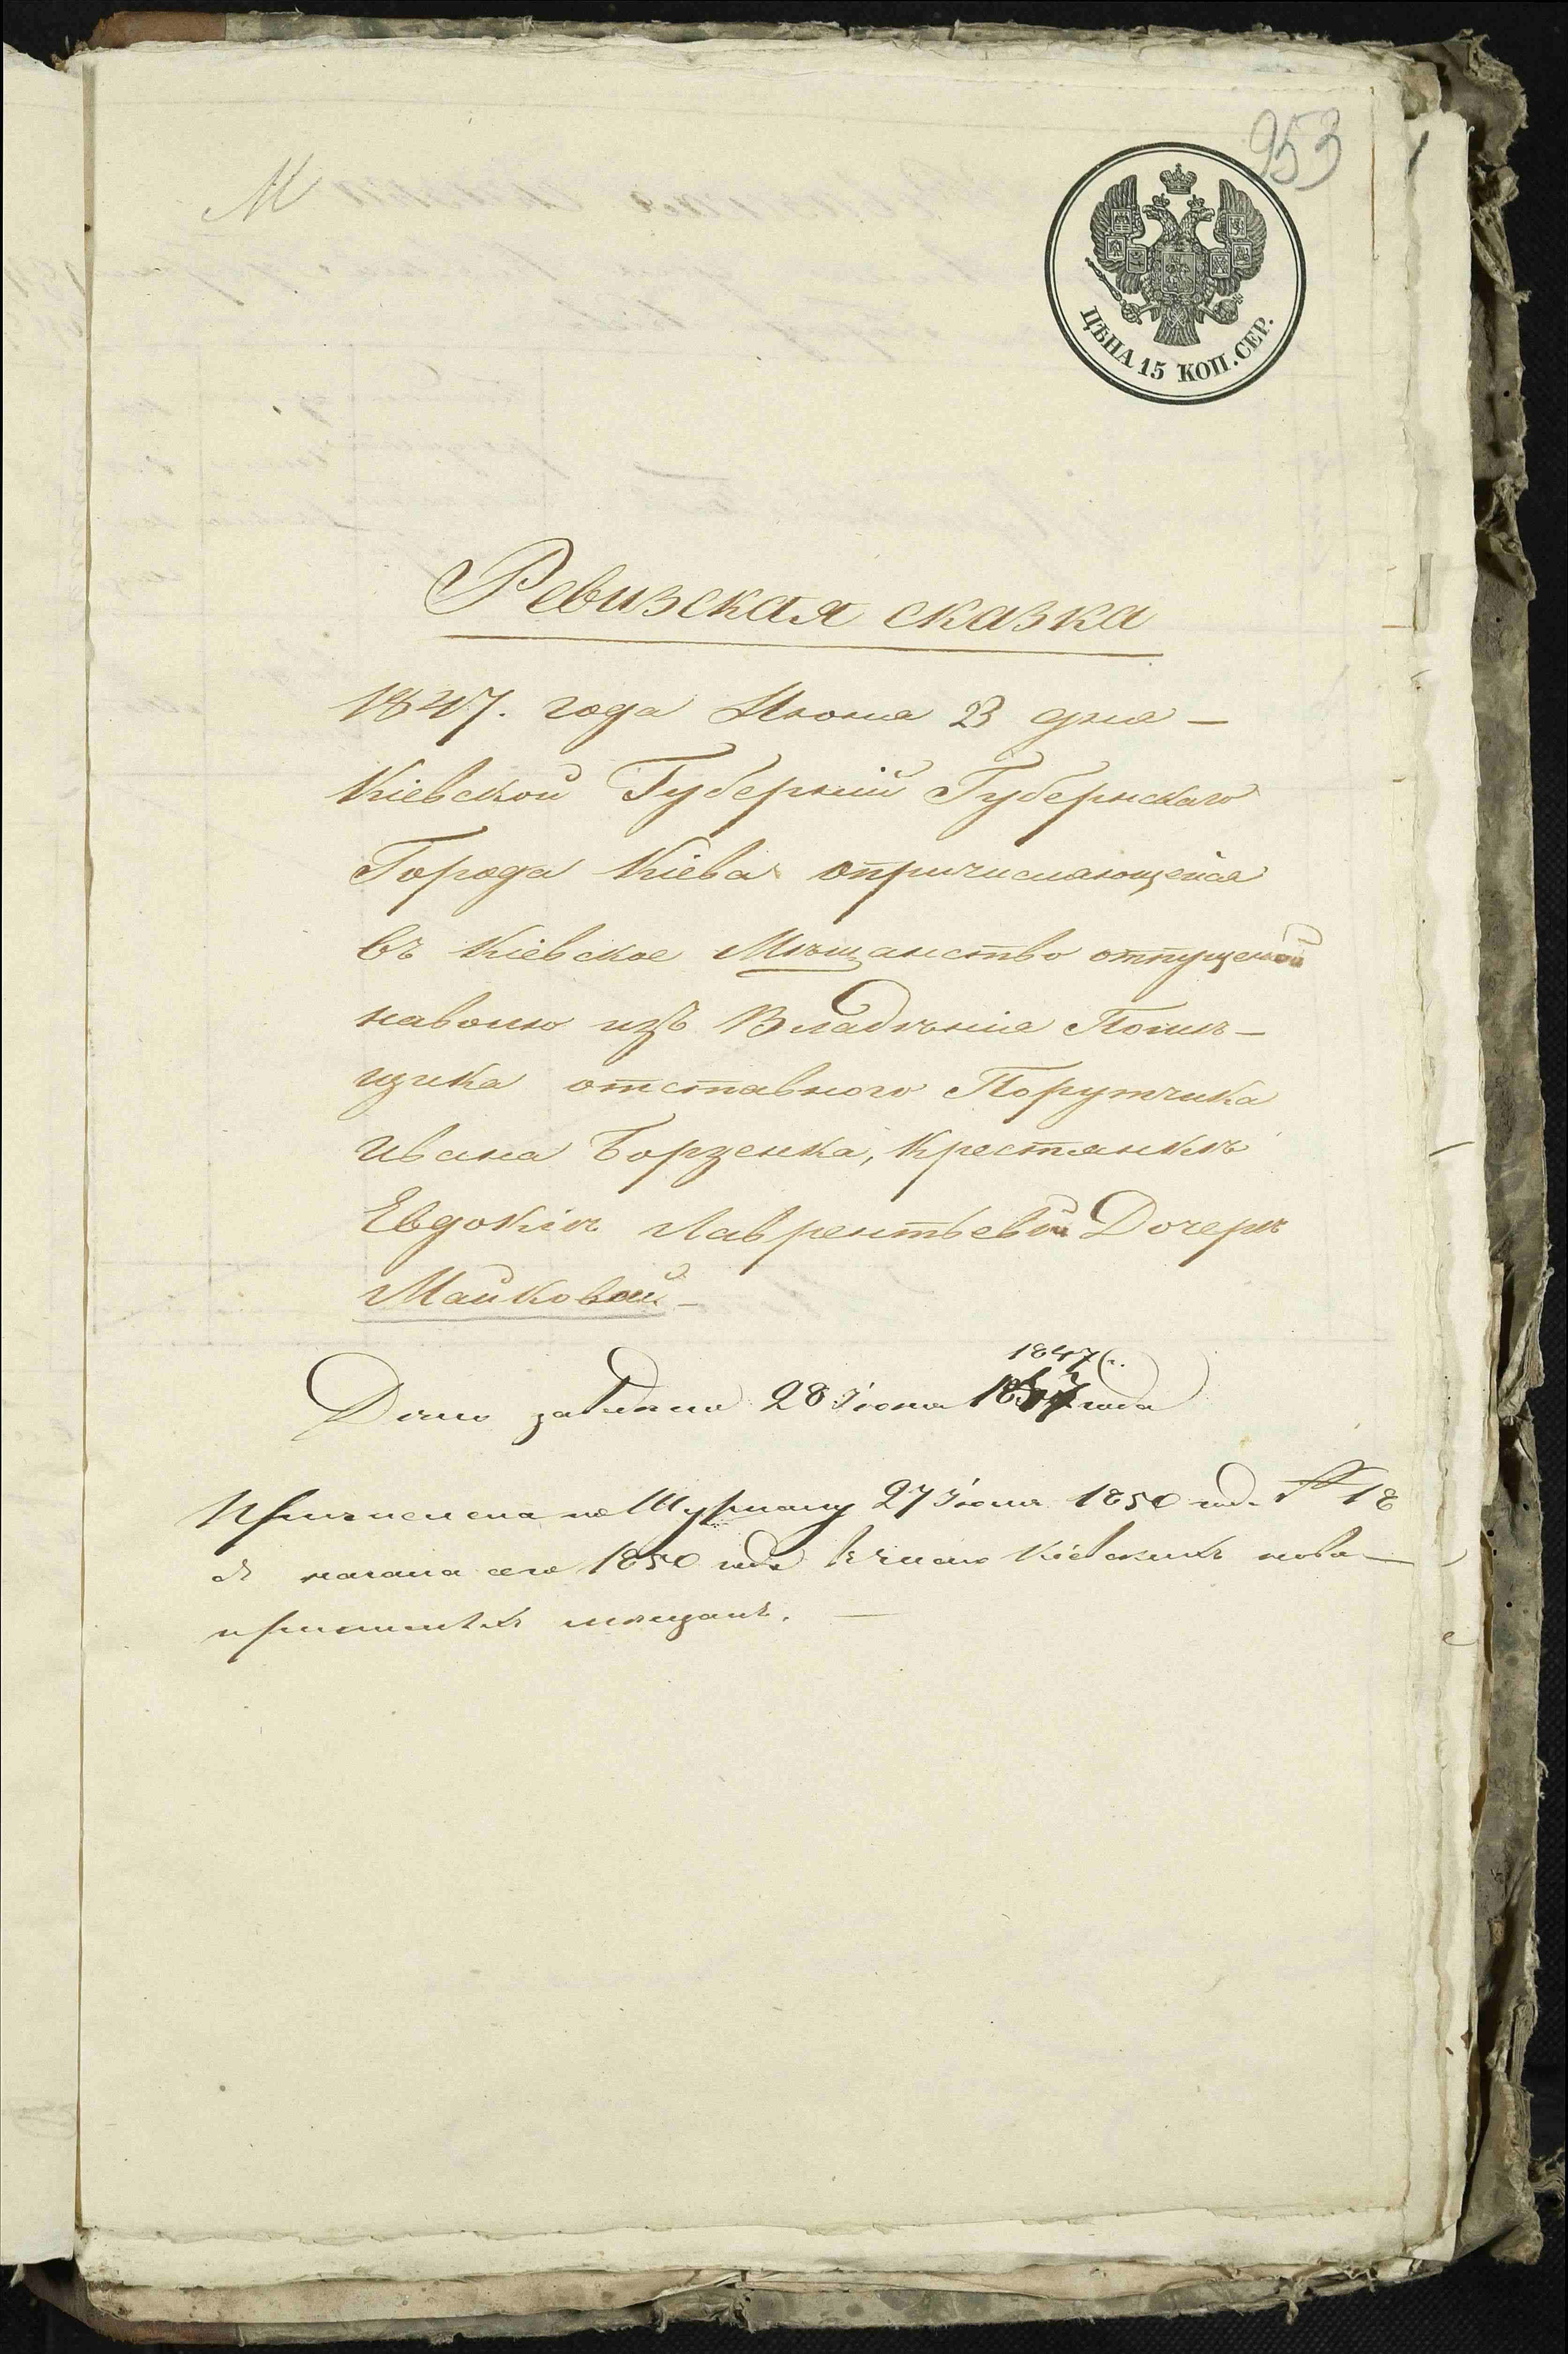 953
М
ЦѢНА 15 КОП. СЕР.
Ревизская сказка
1847. года Июня 23 дня —
Кіевской Губерніи Губернскаго
Города Кіева опричисляющейся
въ Кіевское Мѣщанство отпущеной
наволю изъ Владѣнія Помѣ-
щика отставного Порутчика
Ивана Борзенка, Крестянкѣ
Евдокіи Лаврентьевой Дочерѣ
Майковой —
1847 г.
Дело заведено 28 Іюня года
Причислена по Журналу 27 Іюня 1850 год. № 18
съ начала сего 1850 года въ число Кіевскихъ ново-
мѣщанъ. —